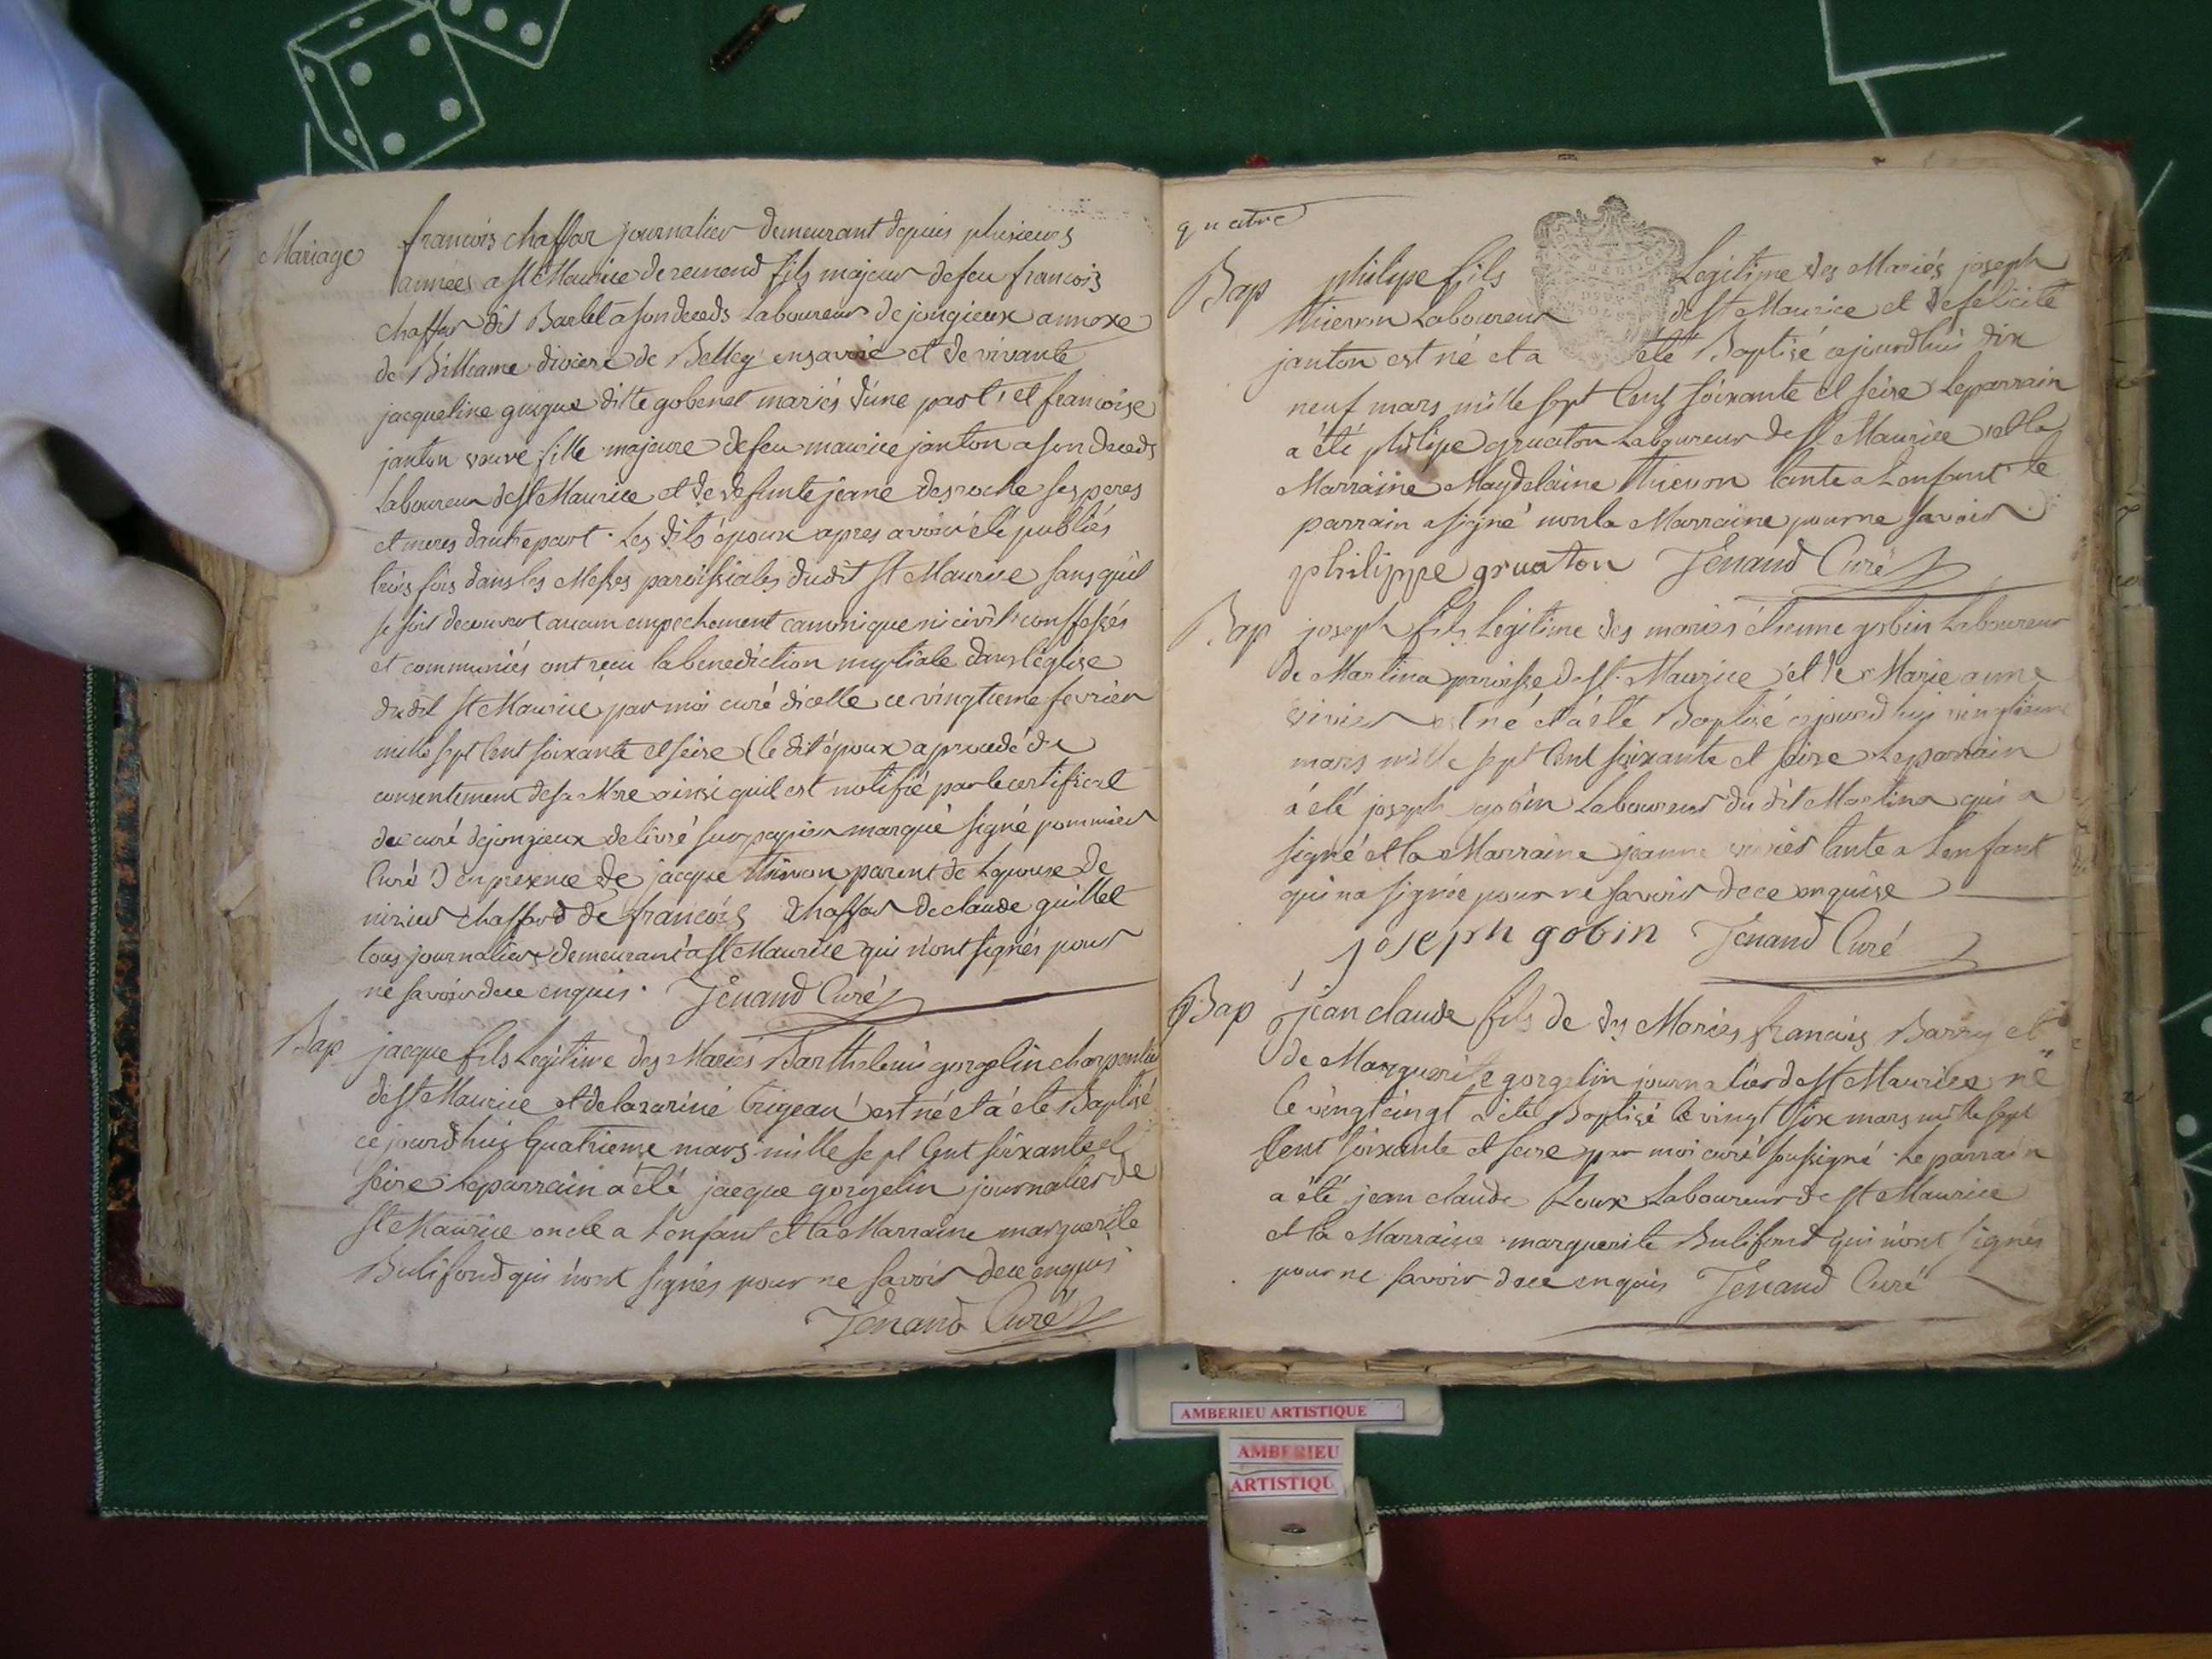 Mariage
francois chaffar journalier demeurant depuis plusieurs
annees a st Maurice de remend fils majeur de feu francois
chaffar dit Barlet a son deceds Laboureur de jongieux annexe
de Billieme diocese de Belley en savoie et de vivante
jacqueline guigue ditte gobenet mariés d'une part, et francoise
janton veuve fille majeure de feu maurice janton a son deceds
Laboureur de st Maurice et de defunte jeane desroche ses peres
et meres d'autre part. Les dits époux apres avoir été publiés
trois fois dans les Messes paroissiales du dit st Maurice sans quil
se soit decouvert aucun empechement canonique ni civil confessés
et communiés ont reçu la benediction nuptiale dans l'église
du dit st Maurice par moi curé d'icelle ce vingtieme fevrier
mille sept Cent soixante et seise (le dit époux a procedé du
consentement de sa Mere ainsi quil est notifié par le certificat
du curé de jongieux delivré sur papier marqué signé pommier
Curé) en presence de jacque thievon parent de Lepouse de
nizier chaffard de francois chaffar de claude guillet
tous journaliers demeurant a st Maurice qui n'ont signés pour
ne savoir de ce enquis. Jenand Curé
Bap
jacque fils Legitime des Mariés Barthelemi gorgelin charpentier
de st Maurice et de lazarine trigeau est né et a été Baptisé
ce jourd'hui Quatrieme mars mille sept Cent soixante et
seise Le parrain a été jacque gorgelin journalier de
st Maurice oncle a l'enfant et la Marraine marguerite
Bulifond qui n'ont signés pour ne savoir de ce enquis
Jenand Curé
quatre
Bap
philipe fils Legitime des Mariés joseph
thievon Laboureur de st Maurice et de felicité
janton est né et a été Baptisé cejourdhui dix
neuf mars mille sept Cent soixante et seise Le parrain
a été philipe gruaton Laboureur de st Maurice et la
Marraine Magdelaine thievon tante a Lenfant le
parrain a signé non la Marraine pour ne savoir
philippe gruaton Jenand Curé
Bap
joseph fils Legitime des mariés étienne gobin Laboureur
de Martina paroisse de st. Maurice et de Marie anne
est né et a été Baptisé cejourd'hui vingtieme
mars mille sept Cent soixante et seise Le parrain
a été joseph gobin Laboureur du dit Martina qui a
signé et la Marraine jeanne tante a Lenfant
qui na signée pour ne savoir de ce enquise
joseph gobin Jenand Curé
Bap
jean claude fils de des Mariés francois Barry et
de Marguerite gorgelin journalier de st Maurice né
le vingt cinqt a été Baptisé le vingt six mars mille sept
Cent soixante et seise par moi curé soussigné. Le parrain
a été jean claude Roux Laboureur de st Maurice
et la Marraine marguerite Bulifond qui n'ont signés
pour ne savoir de ce enquis Jenand Curé
AMBERIEU ARTISTIQUE
AMBERIEU
ARTISTIQU